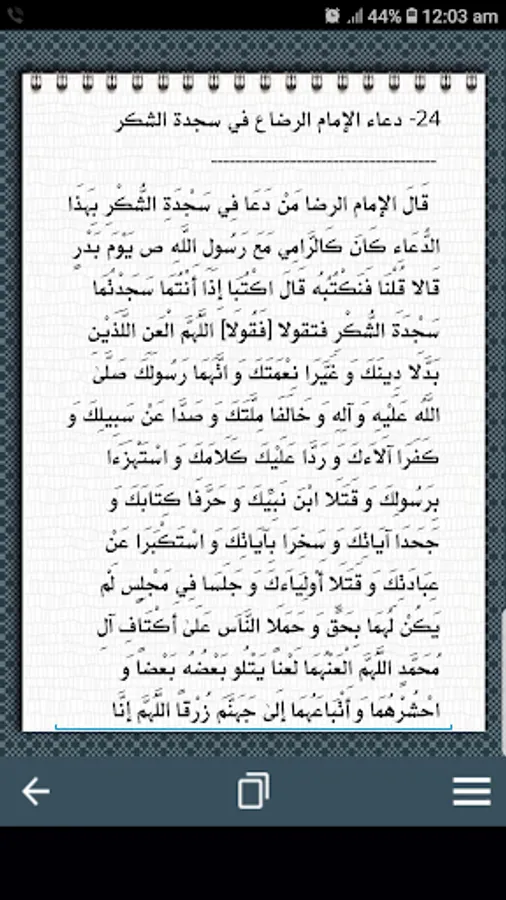 44% 12:03 am
24- دعاء الإمام الرضا ع في سجدة الشكر
------------------------------------
قَالَ الإمام الرضا مَنْ دَعَا فِي سَجْدَةِ الشُّكْرِ بِهَذَا
الدُّعَاءِ كَانَ كَالرَّامِي مَعَ رَسُولِ اللَّهِ ص يَوْمَ بَدْرٍ
قَالا قُلْنَا فَنَكْتُبُه قَالَ اكْتُبَا إِذَا أَنْتُمَا سَجَدْتُمَا
سَجْدَةَ الشُّكْرِ فتقولا [فَقُولا] اللَّهُمَّ الْعَنِ اللَّذَيْنِ
بَدَّلا دِينَكَ وَ غَيَّرَا نِعْمَتَكَ وَ اتَّهَمَا رَسُولَكَ صَلَّى
اللَّهُ عَلَيْهِ وَ آلِهِ وَ خَالَفَا مِلَّتَكَ وَ صَدَّا عَنْ سَبِيلِكَ وَ
كَفَرَا آلاءَكَ وَ رَدَّا عَلَيْكَ كَلامَكَ وَ اسْتَهْزَءَا
بِرَسُولِكَ وَ قَتَلا ابْنَ نَبِيِّكَ وَ حَرَّفَا كِتَابَكَ وَ
جَحَدَا آيَاتِكَ وَ سَخِرَا بِآيَاتِكَ وَ اسْتَكْبَرَا عَنْ
عِبَادَتِكَ وَ قَتَلا أَوْلِيَاءَكَ وَ جَلَسَا فِي مَجْلِسٍ لَمْ
يَكُنْ لَهُمَا بِحَقٍّ وَ حَمَلا النَّاسَ عَلَى أَكْتَافِ آلِ
مُحَمَّدٍ اللَّهُمَّ الْعَنْهُمَا لَعْناً يَتْلُو بَعْضُهُ بَعْضاً وَ
احْشُرْهُمَا وَ أَتْبَاعَهُمَا إِلَى جَهَنَّمَ زُرْقاً اللَّهُمَّ إِنَّا